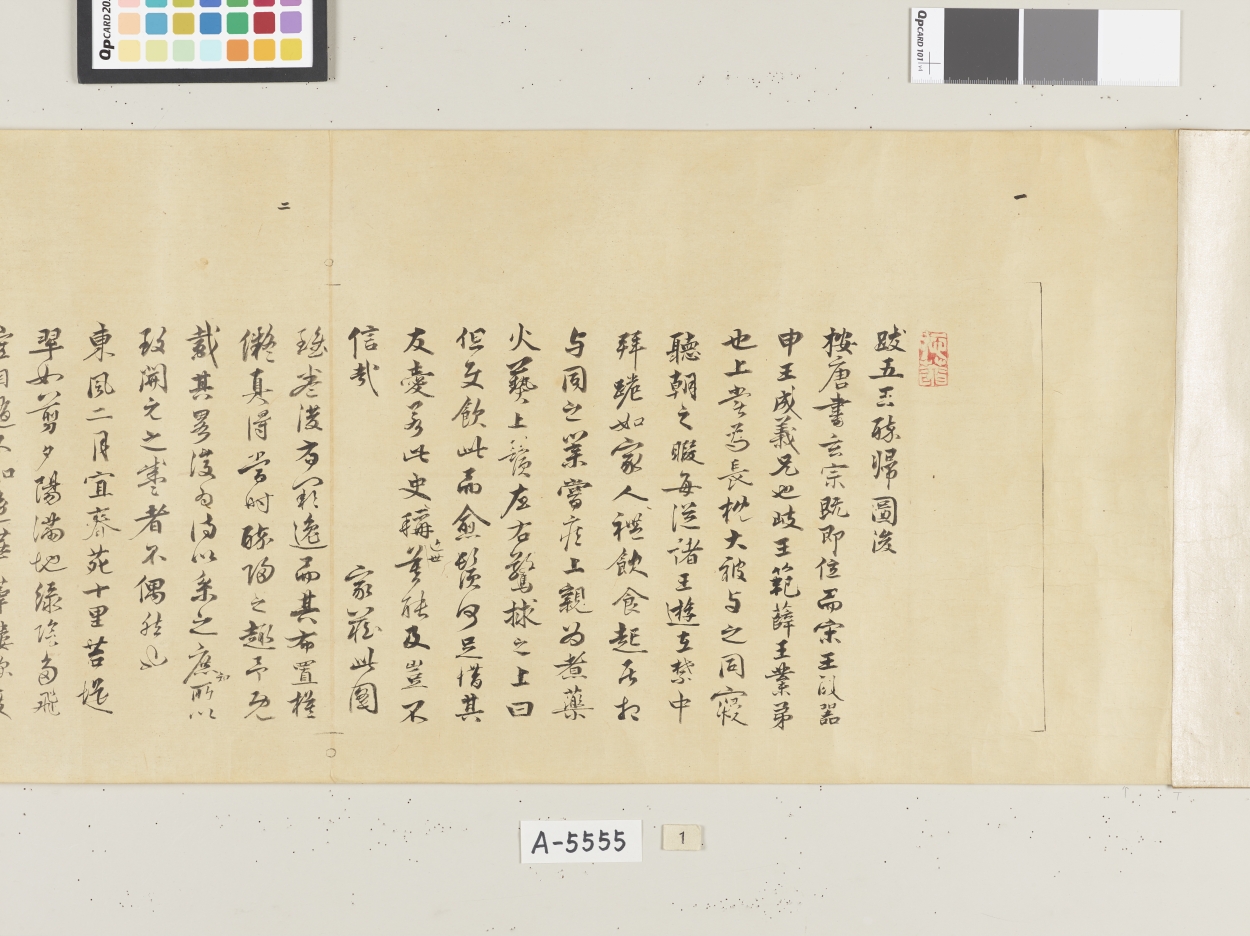 一
跋五王醉歸圖後
按唐書玄宗既即位而宋王成器
申王成義兄也岐王範薛王業弟
也上嘗為長枕大被与之同寢
聽朝之暇每從諸王遊在禁中
拜跪如家人禮飲食起居相
与同之業嘗疾上親為煮藥
火爇上鬚左右驚救之上曰
但王飲此而愈鬚何足惜其
友愛若此史稱近世莫能及豈不
信哉 家藏此圖
二
雖卷後有而其布置
儼真得當時醉歸之趣予既
戴其後為詩以系之庶知所以
致開元之盛者不偶然也
東風二月宜春苑十里苔堤
翠如剪夕陽滿地綠陰多飛
QpCARD 101
QpCARD 20
A-5555
1